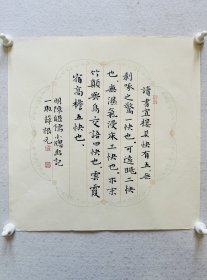 讀書宜樓其快有五無
剝啄之驚一快也可遠眺二快
也無濕氣浸床三快也木末
竹顛與鳥交語四快也雲霞
宿高檐五快也
明陳繼儒小窗幽記